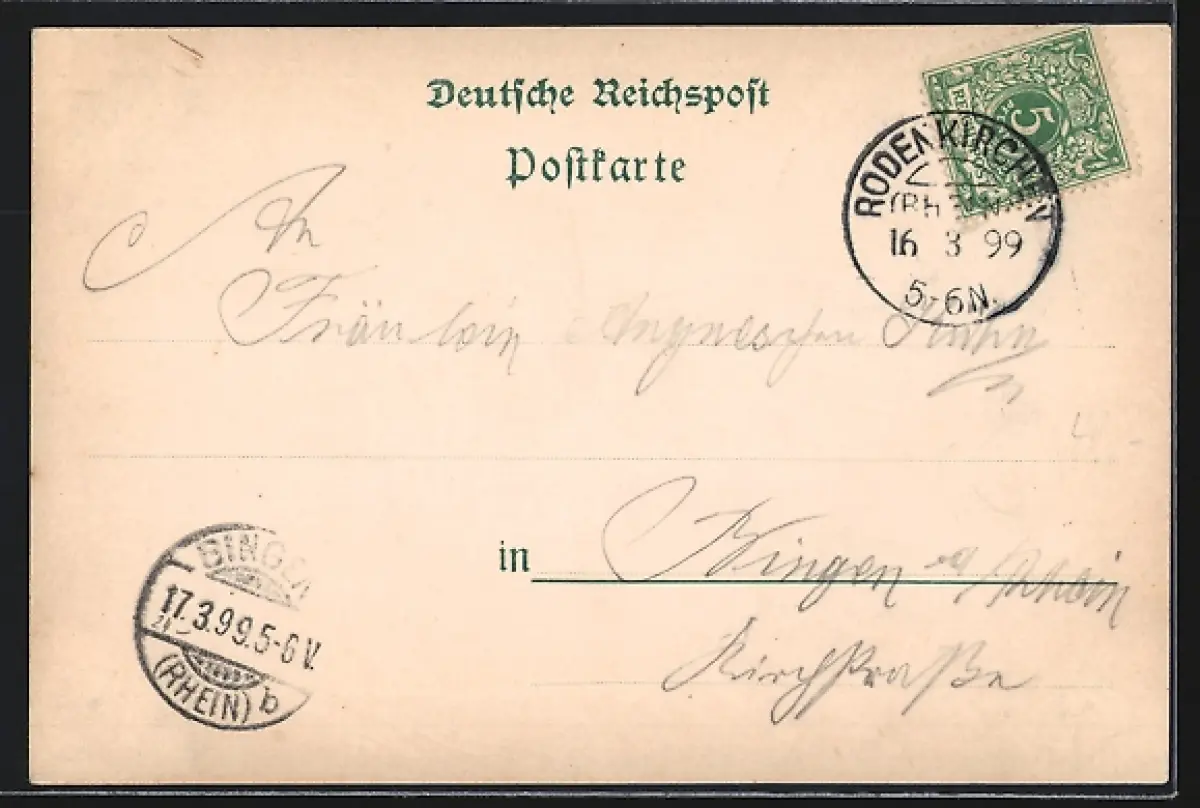 Deutsche Reichspost
Postkarte
5
RODENKIRCHEN
(RHEIN)
16 3 99
5-6N.
An
Fräulein
in Bingen a/Rhein
Kirchstraße
BINGEN
17.3.99.5-6V.
(RHEIN) b